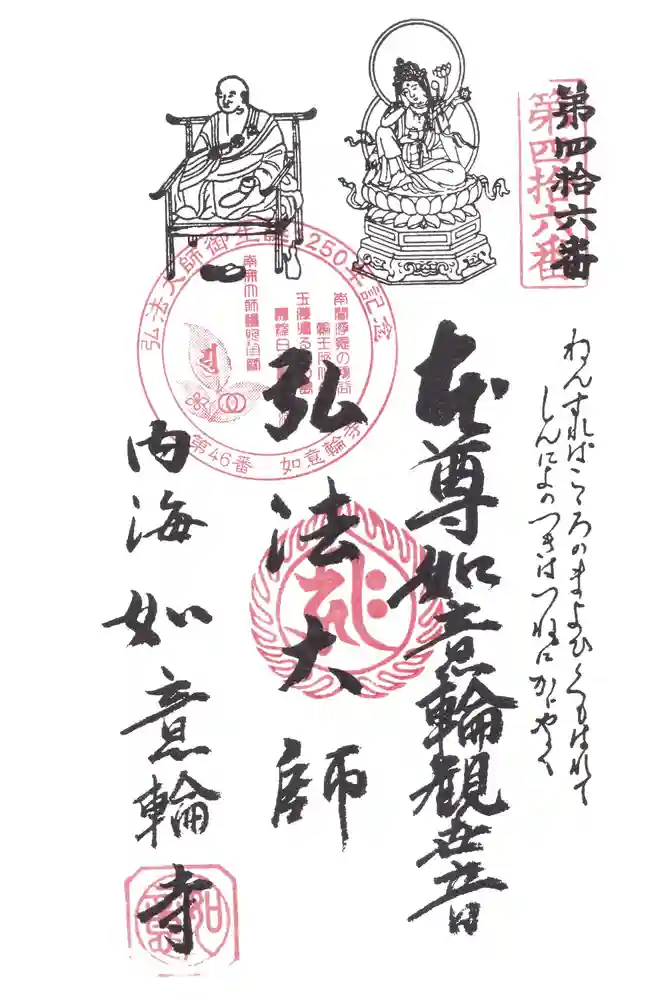 第四拾六番
第四拾六番
ねんずればこころのまよひくもはれて
しんによのつきはつねにかゞやく
本尊如意輪観世音
弘法大師
内海如意輪寺
弘法大師御生誕1250年記念
第46番 如意輪寺